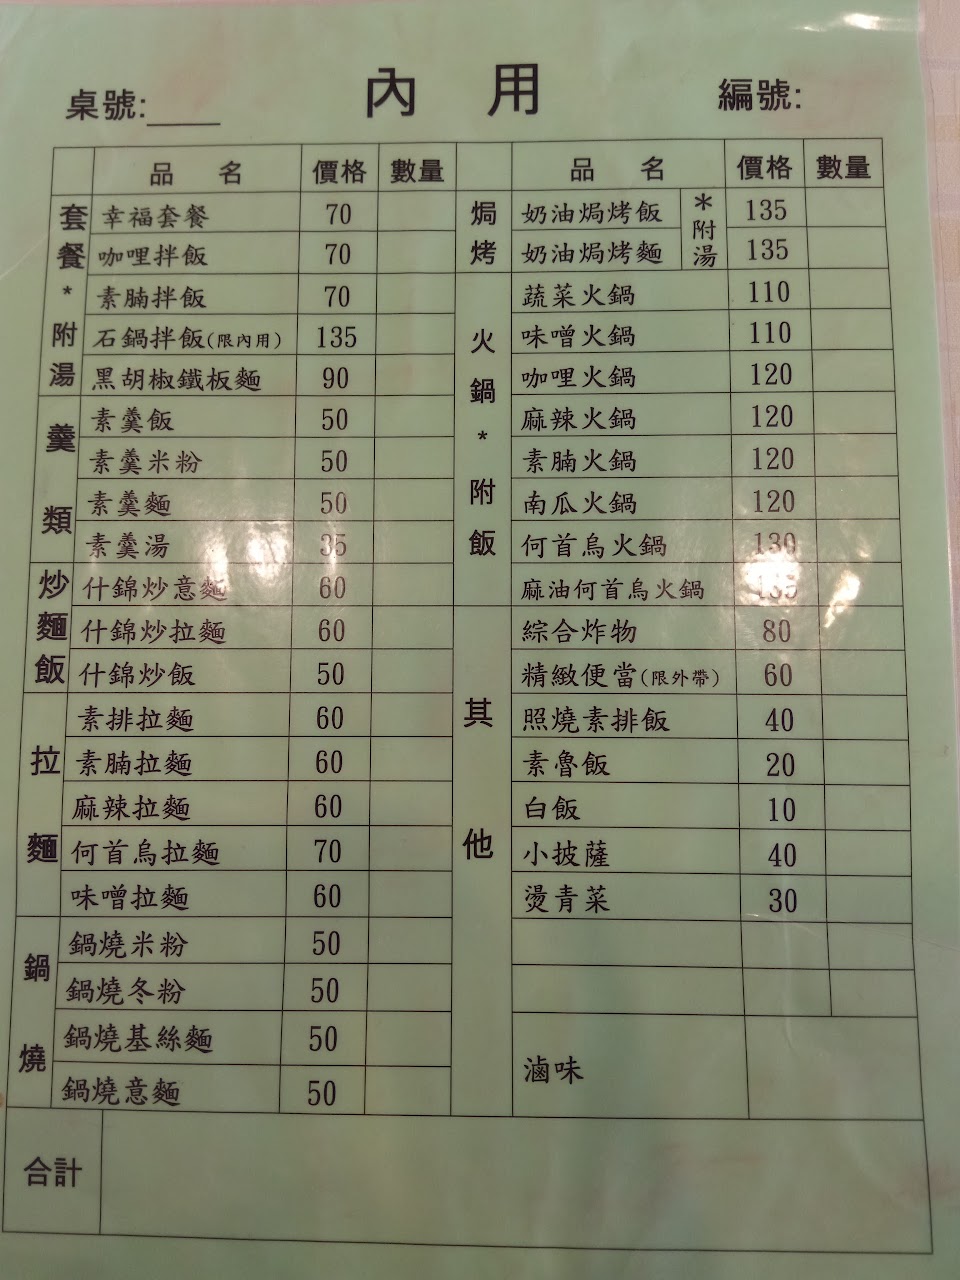 內用
桌號:
編號:
品名 價格 數量
套餐*附湯
幸福套餐 70
咖哩拌飯 70
素腩拌飯 70
石鍋拌飯(限內用) 135
黑胡椒鐵板麵 90
羹類
素羹飯 50
素羹米粉 50
素羹麵 50
素羹湯 35
炒麵飯
什錦炒意麵 60
什錦炒拉麵 60
什錦炒飯 50
拉麵
素排拉麵 60
素腩拉麵 60
麻辣拉麵 60
何首烏拉麵 70
味噌拉麵 60
鍋燒
鍋燒米粉 50
鍋燒冬粉 50
鍋燒基絲麵 50
鍋燒意麵 50
品名 價格 數量
焗烤
奶油焗烤飯 135
奶油焗烤麵 135
*附湯
火鍋*附飯
蔬菜火鍋 110
味噌火鍋 110
咖哩火鍋 120
麻辣火鍋 120
素腩火鍋 120
南瓜火鍋 120
何首烏火鍋 130
麻油何首烏火鍋 135
其他
綜合炸物 80
精緻便當(限外帶) 60
照燒素排飯 40
素魯飯 20
白飯 10
小披薩 40
燙青菜 30
滷味
合計